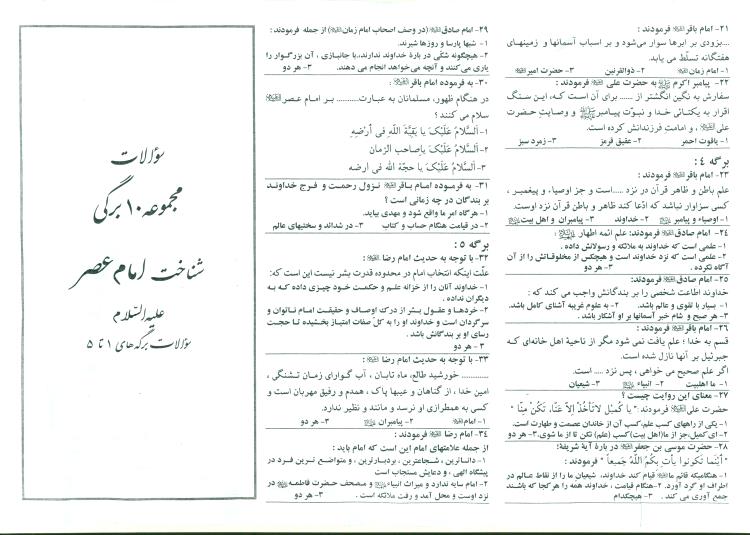 ۲۱- امام باقر علیه السلام فرمودند :
...بزودی بر ابرها سوار می‌شود و بر اسباب آسمانها و زمینهای
هفتگانه تسلّط می یابد.
۱- امام زمان علیه السلام ۲- ذوالقرنین ۳- حضرت امیر علیه السلام
۲۲- پیامبر اکرم به حضرت علی علیه السلام فرمودند :
سفارش به نگین انگشتر از ...... برای آن است کـه، ایـن سـنگ
اقرار به یکتـائی خدا و نبوّت پیـامبر و وصایتِ حضرت
علی ، و امامتِ فرزندانش کرده است.
۱- یاقوت احمر ۲- عقیق قرمز ۳- زمرد سبز
برگه ۴ :
۲۳- امام باقر فرمودند :
علم باطن و ظاهر قرآن در نزد .....است و جز اوصیاء و پیغمبر ،
کسی سزاوار نباشد که ادّعا کند ظاهر و باطن قرآن نزد اوست.
۱- اوصیاء و پیامبر ۲- خداوند ۳- پیامبران و اهل بیت
۲۴- امام صادق فرمودند: علم ائمه اطهار :
۱- علمی است که خداوند به ملائکه و رسولانش داده .
۲- علمی است که نزد خداوند است و هیچکس از مخلوقـاتش را از آن
آگاه نکرده . ۳- هر دو
۲۵- امام صادق فرمودند:
خداوند اطاعت شخصی را بر بندگانش واجب می‌کند که :
۱- بسیار با تقوی و عالم باشد. ۲- به علوم غریبه آشنای کامل باشد.
۳- هر صبح و شام خبر آسمانها بر او آشکار باشد .
۲۶- امام باقر فرمودند :
قسم به خدا ؛ علم یافت نمی شود مگر از ناحیهٔ اهل خانه‌ای کـه
جبرئیل بر آنها نازل شده است.
اگر علم صحیح می خواهی ، پس نزد ..... است.
۱- ما اهلبیت ۲- انبیاء ۳- شیعیان
۲۷- معنای این روایت چیست ؟
حضرت علی فرمودند:" یا کُمیْل لاتَأخُذْ اِلاّ عَنّا، تَکُنْ مِنّا "
۱- یکی از راههای کسب علم،کسب آن از خاندان عصمت و طهارت است.
۲- ای کمیل،جز از ما(اهل بیت)کسبِ (علم) نکن تا از ما شوی. ۳- هر دو
۲۸- حضرت موسی بن جعفر در بارهٔ آیهٔ شریفهٔ:
" أیْنَمَا تَکُونوا یأتِ بِکُمُ اللّهُ جَمیعاً " فرمودند :
۱- هنگامیکه قائم ما قیام کند خداوند، شیعیان ما را از نقاط عـالم در
اطراف او گرد آورد. ۲- هنگام قیامت ، خداوند همه را هر کجا که باشند
جمع آوری می کند . ۳- هیچکدام
۲۹- امام صادق (در وصف اصحاب امام زمان ) از جمله فرمودند :
۱- شبها پارسا و روزها شیرند.
۲- هیچگونه شکّی در بارهٔ خداوند ندارند،با جانبازی ، آن بزرگـوار را
یاری می‌کنند و آنچه می‌خواهد انجام می دهند. ۳- هر دو
۳۰- به فرموده امام باقر :
در هنگام ظهور، مسلمانان به عبـارت........... بـر امـام عـصر
سلام می کنند ؛
۱- اَلسَّلامُ عَلَیْکَ یا بَقِیَّةَ اللّهِ فی أرْضِهِ
۲- اَلسَّلامُ عَلَیْکَ یاصاحب الزّمان
۳- اَلسَّلامُ عَلَیْکَ یا حجّة اللّه فی ارضه
۳۱- به فرمـوده امـام باقر نـزول رحمـت و فـرج خداونـد
بر بندگان در چه زمانی است ؟
۱- هرگاه امر ما واقع شود و مهدی بیاید.
۲- در قیامت هنگام حساب و کتاب ۳- در شدائد و سختیهای عالم
برگه ۵ :
۳۲- با توجه به حدیث امام رضا :
علّت اینکه انتخاب امام در محدوده قدرت بشر نیست این است که:
۱- خداوند آنان را از خزانه علـم و حکمـت خـود چیزی داده کـه بـه
دیگران نداده .
۲- خردهـا و عقـول بـشر از درک اوصـاف و حقیقـت امـام نـاتوان و
سرگردان است و خداوند او را به کلّ صفات امتیـاز بخشیده تا حجـت
رسای او بر بندگانش باشد .
۳- هر دو
۳۳- با توجه به حدیث امام رضا :
............ خورشید طالع، ماه تابـان ، آب گـوارای زمـان تـشنگی ،
امین خدا ، از گناهان و عیبها پاک ، همدم و رفیق مهربان است و
کسی به همطرازی او نرسد و مانند و نظیر ندارد.
۱- امام ۲- پیامبران ۳- هر دو
۳۴- امام رضا فرمودند :
از جمله علامتهای امام این است که امام باید :
۱- دانـاترین ، شـجاعترین ، بردبـارترین ، و متواضـع تـرین فـرد در
پیشگاه الهی ، و دعایش مستجاب است
۲- امام سایه ندارد و میراث انبیاء و مـصحف حـضرت فاطمـه در
نزد اوست و محل آمد و رفت ملائکه است . ۳- هر دو
سؤالات
مجموعه ۱۰ برگی
شناخت امام عصر
علیه السّلام
سؤالات برگه های ۱ تا ۵